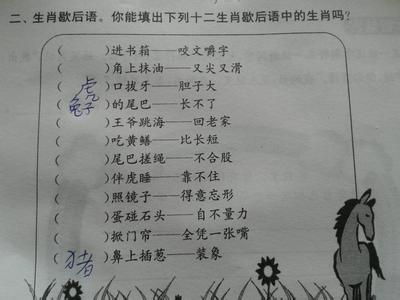 二、生肖歇后语。你能填出下列十二生肖歇后语中的生肖吗?
( )进书箱——咬文嚼字
( )角上抹油——又尖又滑
(虎)口拔牙——胆子大
(兔子)的尾巴——长不了
( )王爷跳海——回老家
( )吃黄鳝——比长短
( )尾巴搓绳——不合股
( )伴虎睡——靠不住
( )照镜子——得意忘形
( )蛋碰石头——自不量力
( )掀门帘——全凭一张嘴
(猪)鼻上插葱——装象